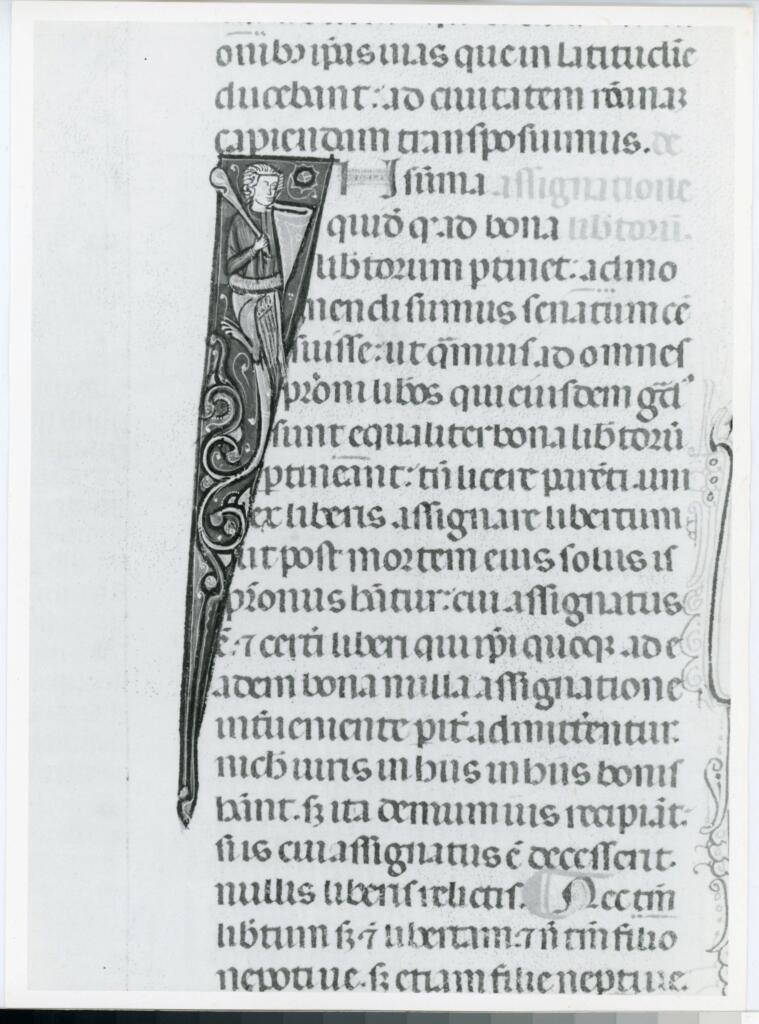 omībꝫ ip̄is mas que in latitudīe
ducebant: ad ciuitatem romanaꝫ
capiendam transposuimus. de
IN suma assignatione
quid̄ q̄ ad bona lib̄torū.
lib̄torum ptinet: admo
nendi sumus senatum cē
suisse: ut q̄muis ad omnes
pr̄oni lib̄os qui eiusdem gd̄'
sunt equaliter bona lib̄torū
ptineant: tn̄ licere parēti uni
ex liberis assignare libertum
ut post mortem eius solus is
pr̄onus hātur: cui assignatus
ē. ⁊ cet̄i liberi qui ip̄i quoqꝫ ad e
adem bona nulla assignatione
int̄ueniente pit̄ admitt̄entur.
nich̄ iuris in hiis in hiis bonis
hānt. sꝫ ita demum ius recipiāt:
si is cui assignatus ē decesserit.
nullis liberis relictis. Nec tm̄
lib̄tum sꝫ ⁊ libertam: ⁊ n̄ tm̄ filio
nepotiue. sꝫ etiam filie neptiue.